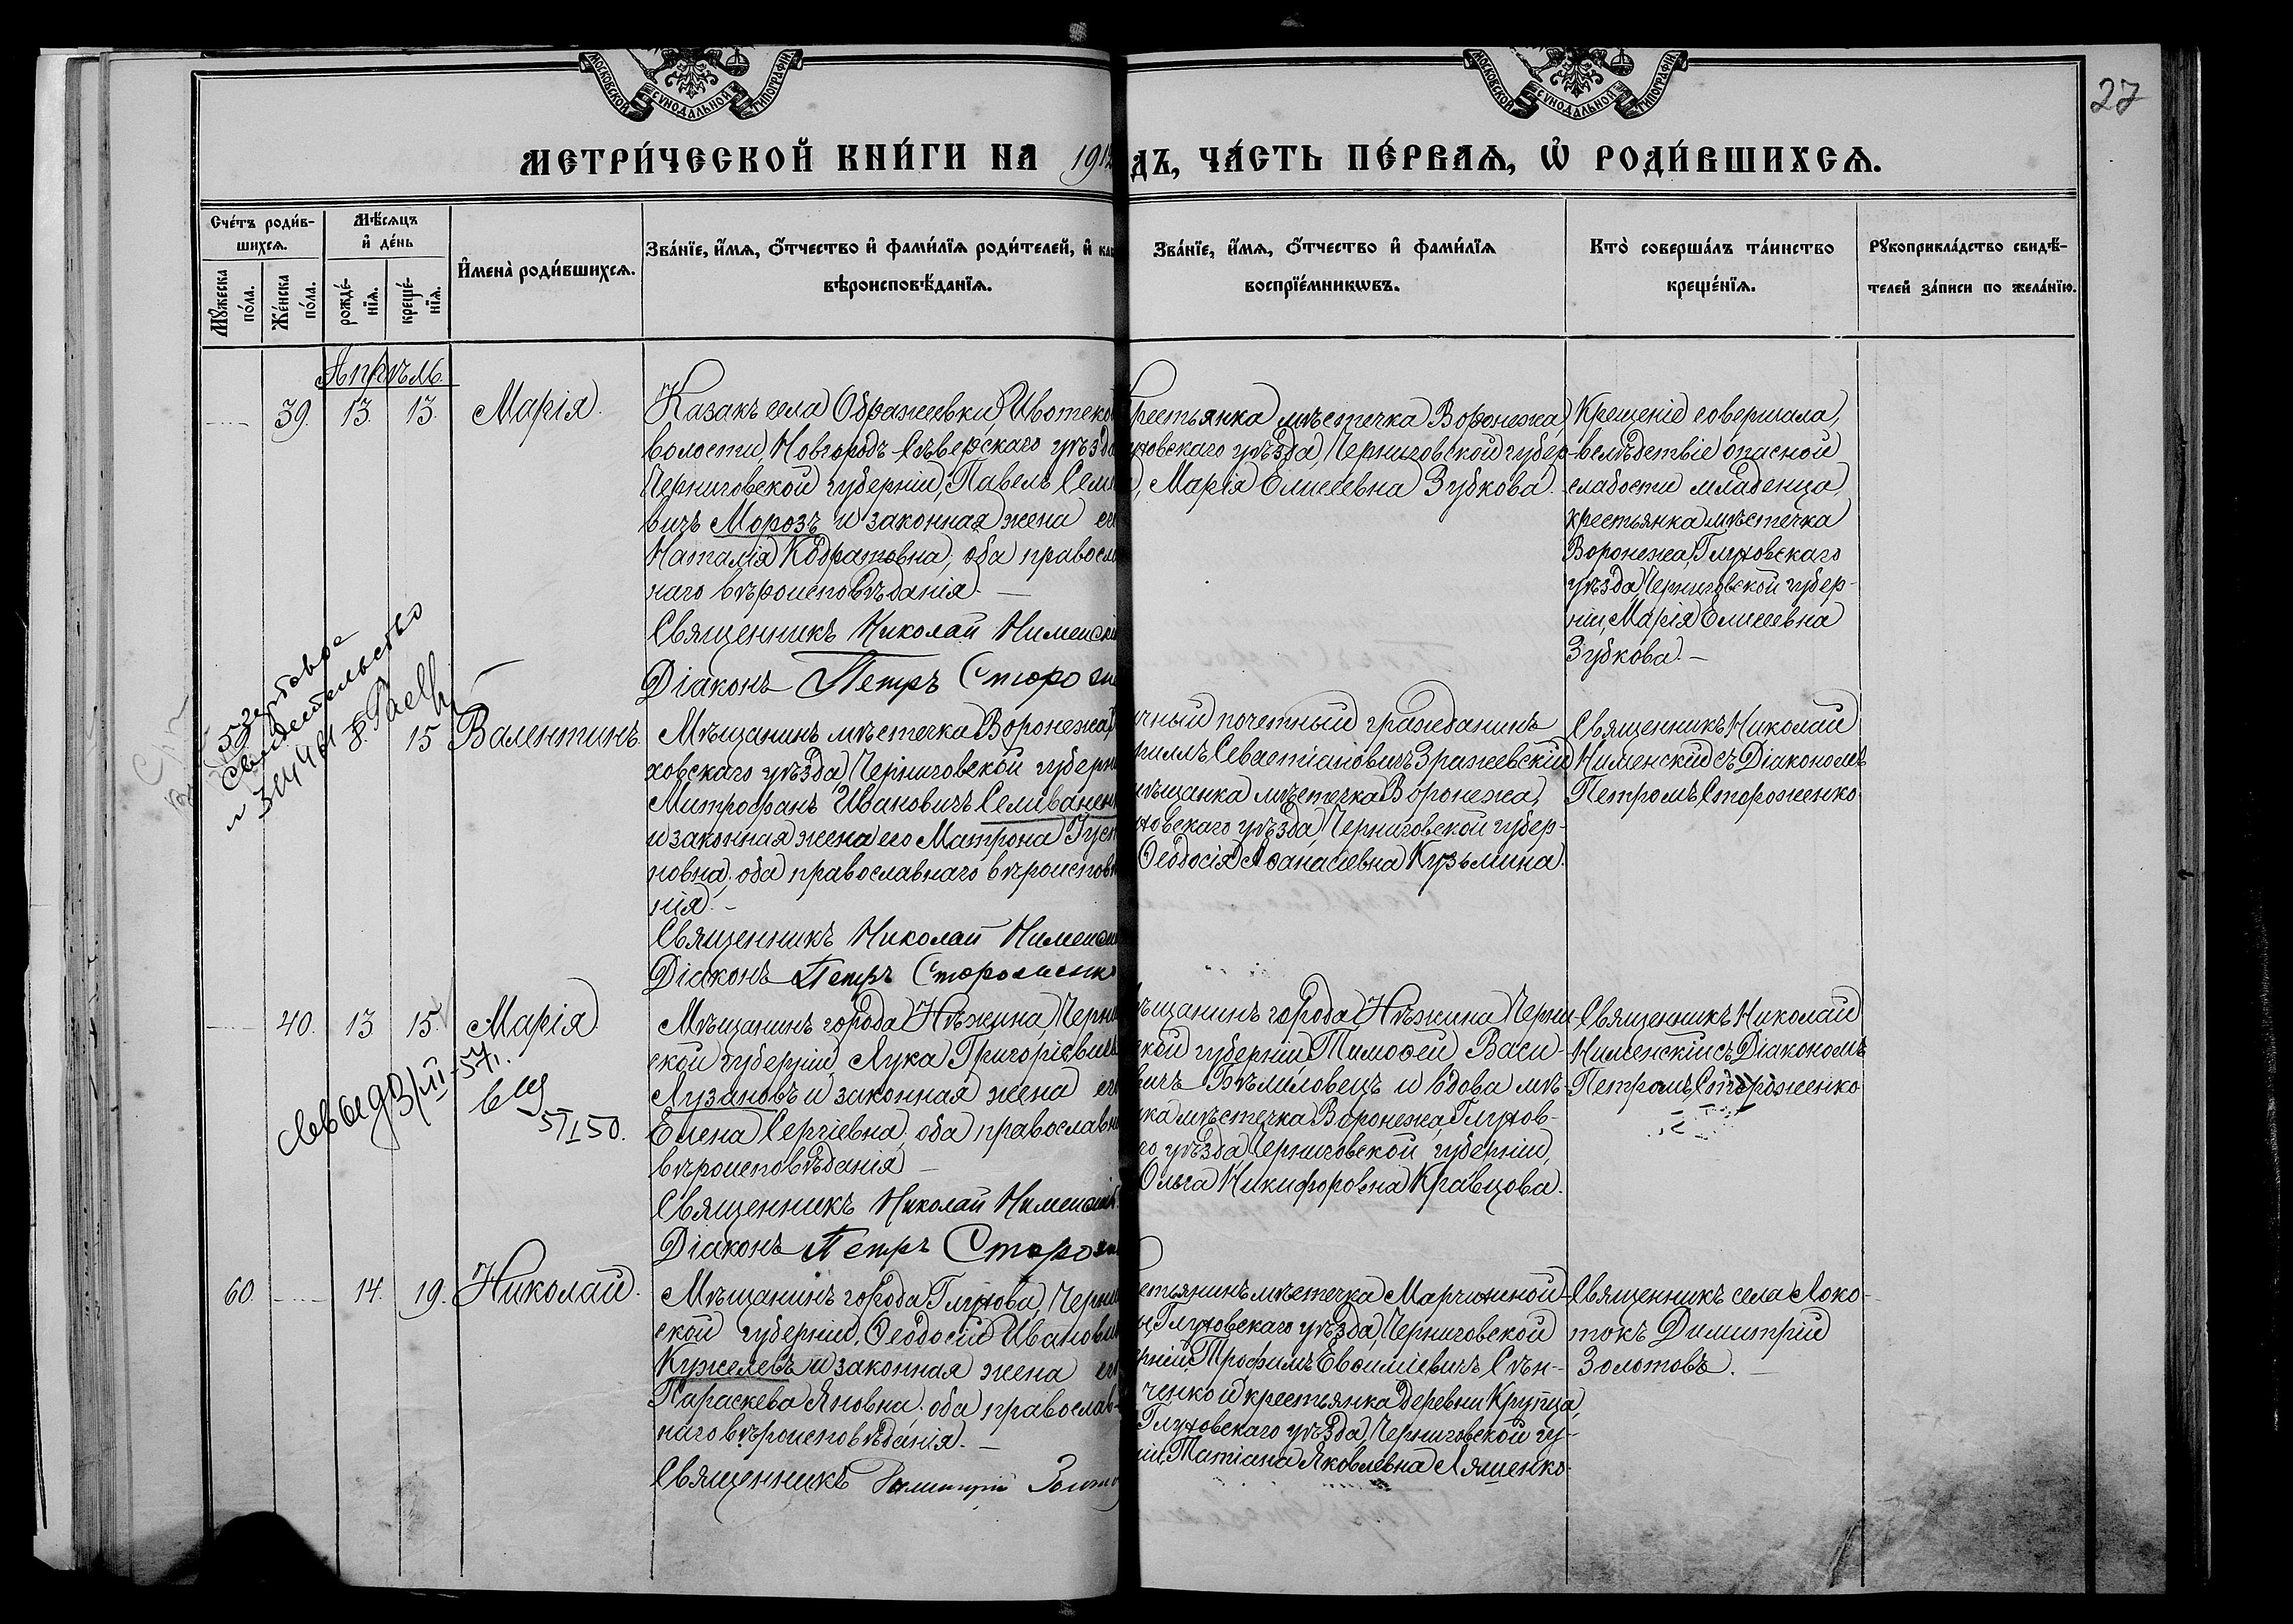 27
МОСКОВСКОЙ СѴНОДАЛЬНОЙ ТИПОГРАФІИ
МОСКОВСКОЙ СѴНОДАЛЬНОЙ ТИПОГРАФІИ
МЕТРИ́ЧЕСКОЙ КНИ́ГИ НА 191
ДЪ, ЧА́СТЬ ПЕ́РВАѦ, Ѡ҆ РОДИ́ВШИХСѦ.
Сче́тъ роди́в-
шихсѧ.
Мꙋ́жеска по́ла.
Же́нска по́ла.
Мѣ́сѧцъ
и҆ де́нь
рожде́-
нїѧ.
креще́-
нїѧ.
И҆мена̀ роди́вшихсѧ.
Зва́нїе, и҆́мѧ, ѻ҆́тчество и҆ фами́лїѧ роди́телей, и҆ как
вѣроисповѣ́данїѧ.
Зва́нїе, и҆́мѧ, ѻ҆́тчество и҆ фами́лїѧ
воспрїе́мникѡвъ.
Кто̀ соверша́лъ та́инство
креще́нїѧ.
Рꙋкоприкла́дство свидѣ́-
телей за́писи по жела́нїю.
Апрѣль.
39. 13. 13. Марія.
Казакъ села Ображеевки, Ивотско
волости, Новгородъ-Сѣверскаго уѣзда
Черниговской губерніи, Павелъ Семе
вичъ Морозъ и законная жена ег
Наталія Кодратовна, оба правосл
наго вѣроисповѣданія. —
Священникъ Николай Нименскі
Діаконъ Петръ Сторо
рестьянка мѣстечка Воронежа,
ховскаго уѣзда, Черниговской губер-
, Марія Елисеевна Зубкова.
Крещеніе совершала,
вслѣдствіе опасной
слабости младенца,
крестьянка мѣстечка
Воронежа, Глуховскаго
уѣзда, Черниговской губер-
ніи, Марія Елисеевна
Зубкова. —
свидетельство
15 Валентинъ.
Мѣщанинъ мѣстечка Воронежа,
ховскаго уѣзда, Черниговской губерн
Митрофанъ Ивановичъ Селиванен
и законная жена его Матрона Густ
новна, оба православнаго вѣроисповѣ
нія. —
Священникъ Николай Нименскі
Діаконъ Петръ Стороженк
чный почетный гражданинъ
иллъ Севастіановичъ Зражевскій
мѣщанка мѣстечка Воронежа,
ховскаго уѣзда, Черниговской губер-
Ѳеодосія Аѳанасіевна Кузьмина.
Священникъ Николай
Нименскій съ Діакономъ
Петромъ Стороженко
40. 13 15. Марія.
Мѣщанинъ города Нѣжина, Черни
ской губерніи, Лука Григоріевич
Лузановъ и законная жена ег
Елена Сергіевна, оба православн
вѣроисповѣданія —
Священникъ Николай Нименскій
Діаконъ Петръ Сторо
ѣщанинъ города Нѣжина Черни-
ской губерніи, Тимоѳей Васи-
вичъ Бѣлиловецъ и вдова мѣ-
ка мѣстечка Воронежа, Глухов-
го уѣзда, Черниговской губерніи,
Ольга Никифоровна Кравцова.
Священникъ Николай
Нименскій съ Діакономъ
Петромъ Стороженко
60. 14. 19. Николай.
Мѣщанинъ города Глухова, Черни
ской губерніи, Ѳеодосій Иванови
Кужелевъ и законная жена ег
Параскева Яновна, оба православ-
наго вѣроисповѣданія. —
Священникъ Димитрій Золото
етьянинъ мѣстечка Марчихиной-
Глуховскаго уѣзда, Черниговской
рніи, Трофимъ Евѳиміевичъ Сѣн-
ченко и крестьянка деревни Крупца,
Глуховскаго уѣзда, Черниговской гу-
іи, Татіана Яковлевна Ляшенко
Священникъ села Локо-
токъ Димитрій
Золотовъ. —